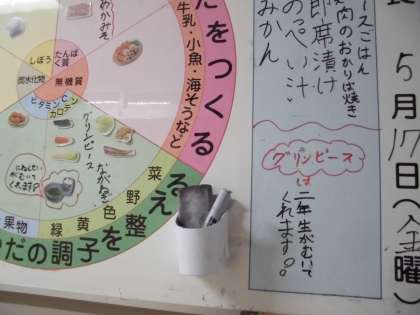 だをつくる
牛乳・小魚・海そうなど
わかめ
しぼう
たんぱく質
炭水化物
無機質
ビタミンC
カロテン
グリンピース
にねんせいが
むいて
くれます
菜
野
色
黄
緑
果物
だの調子を整える
ースごはん
肉のおかりば焼き
即席漬け
のっぺい汁
みかん
グリンピース
は
二年生がむいて
くれます。
5月17日(金曜)